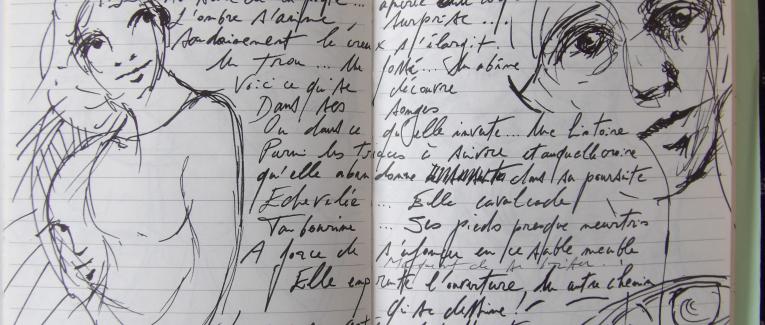 L'ombre s'anime,
surprise ...
soudainement le creux s'élargit.
Un trou ... Un abîme
Voici ce qui se découvre
Dans ses songes
Ou dans ce qu'elle invente... Une histoire
Parmi les traces à suivre et auquelle croire
qu'elle abandonne dans sa poursuite
Echevelée ... Elle cavalcade
Tambourine ... Ses pieds presque meurtris
A force de s'enfoncer en ce sable meuble
Elle emprunte l'ouverture du autre chemin
Qui se dessine !